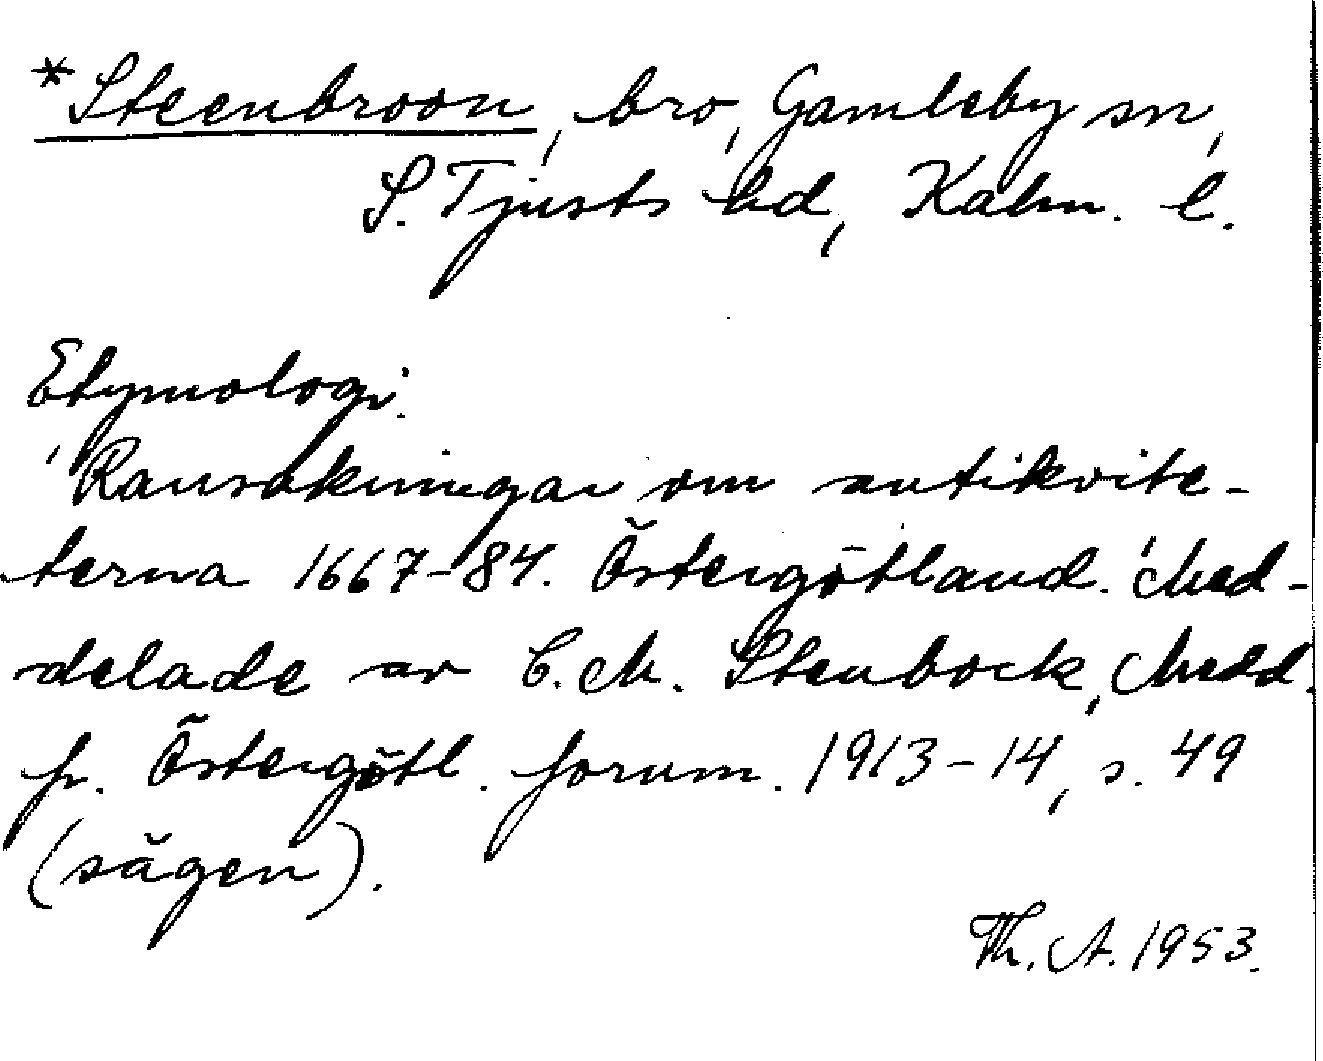 *Steenbroon, bro, Gamleby sn,
S. Tjusts hd, Kalm. l.
Etymologi.
'Ransakningar om antikvite-
terna 1667-84. Östergötland.' Med-
delade av C. M. Stenbock, Medd.
fr. Östergötl. fornm. 1913-14, s. 49
(sägen).
Th. A. 1953.